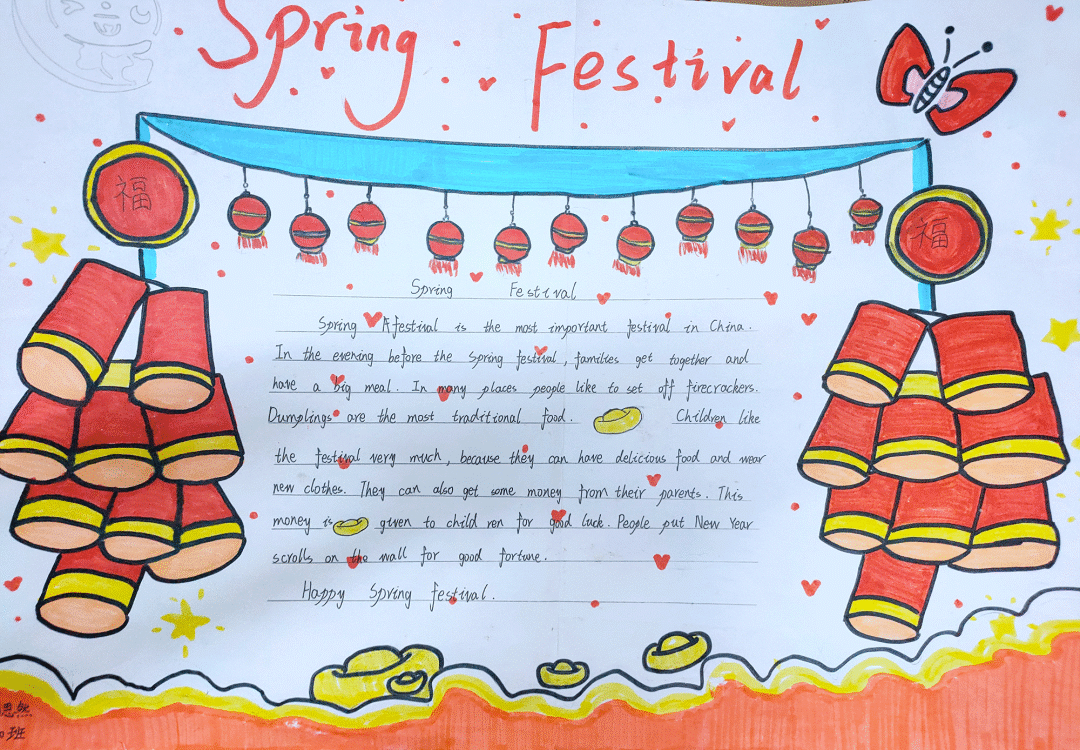 Spring Festival
福
福
Spring Festival
Spring festival is the most important festival in China.
In the evening before the Spring festival, families get together and
have a big meal. In many places people like to set off firecrackers.
Dumplings are the most traditional food. Children like
the festival very much, because they can have delicious food and wear
new clothes. They can also get some money from their parents. This
money is given to child ren for good luck. People put New Year
scrolls on the wall for good fortune.
Happy Spring festival.
思然
班